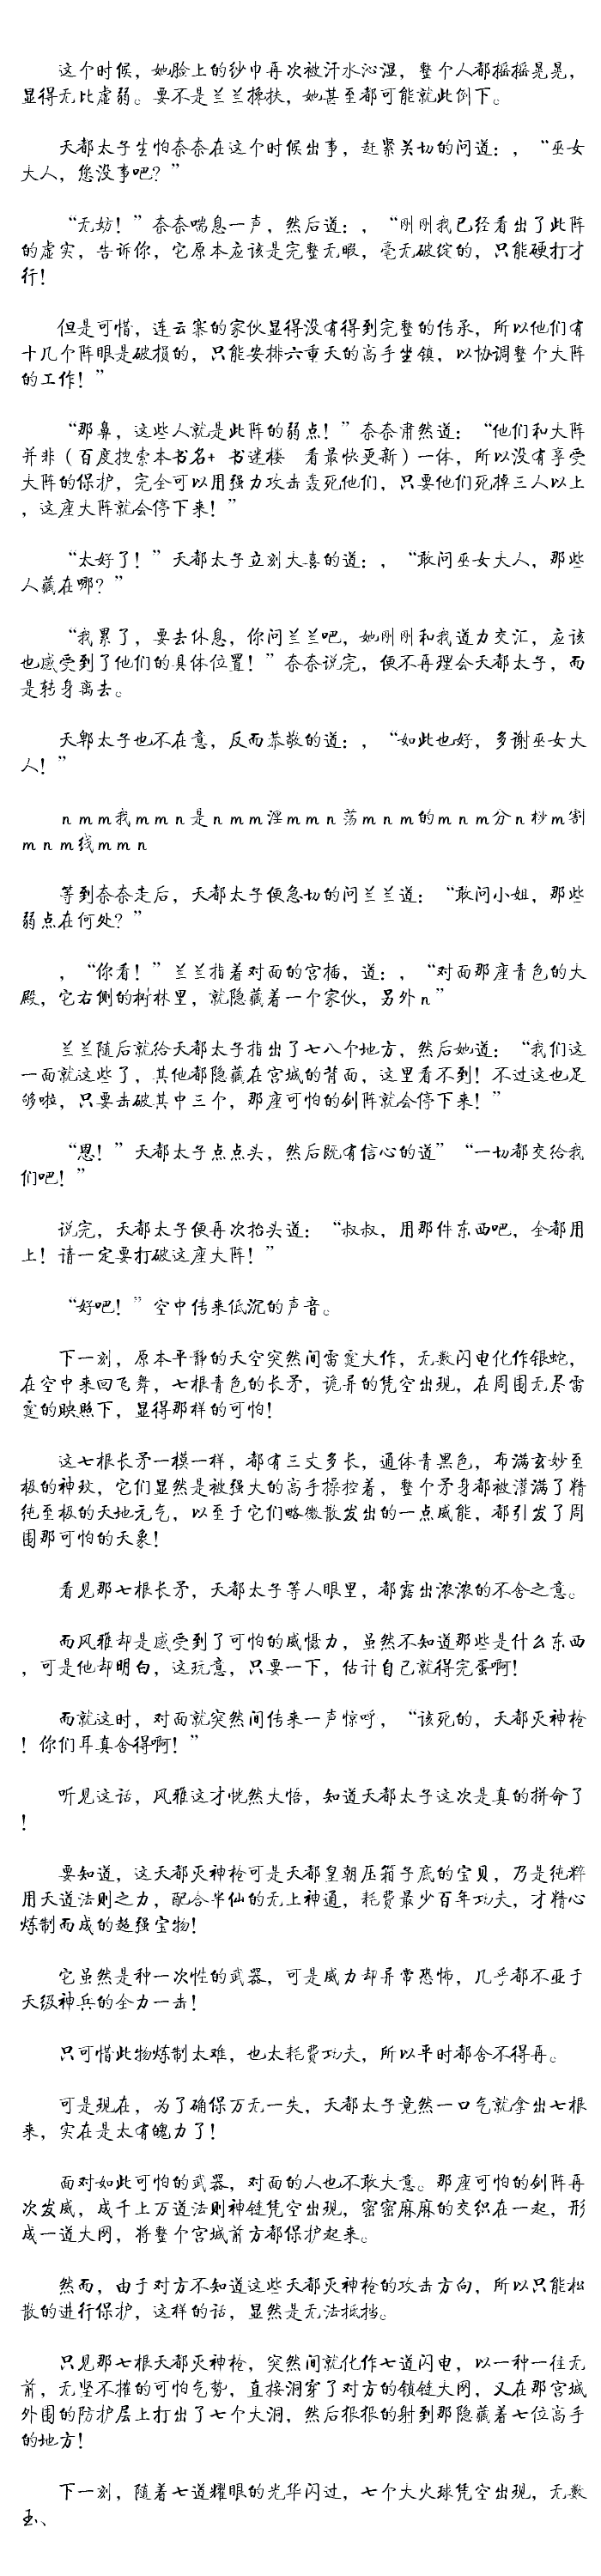 这个时候，她脸上的纱巾再次被汗水沁湿，整个人都摇摇晃晃，
显得无比虚弱。要不是兰兰搀扶，她甚至都可能就此倒下。
天都太子生怕奈奈在这个时候出事，赶紧关切的问道：，“巫女
大人，您没事吧？”
“无妨！”奈奈喘息一声，然后道：，“刚刚我已经看出了此阵
的虚实，告诉你，它原本应该是完整无暇，毫无破绽的，只能硬打才
行！
但是可惜，连云寨的家伙显得没有得到完整的传承，所以他们有
十几个阵眼是破损的，只能安排六重天的高手坐镇，以协调整个大阵
的工作！”
“那鼻，这些人就是此阵的弱点！”奈奈肃然道：“他们和大阵
并非（百度搜索本书名+ 书迷楼 看最快更新）一体，所以没有享受
大阵的保护，完全可以用强力攻击轰死他们，只要他们死掉三人以上
，这座大阵就会停下来！”
“太好了！”天都太子立刻大喜的道：，“敢问巫女大人，那些
人藏在哪？”
“我累了，要去休息，你问兰兰吧，她刚刚和我道力交汇，应该
也感受到了他们的具体位置！”奈奈说完，便不再理会天都太子，而
是转身离去。
天郫太子也不在意，反而恭敬的道：，“如此也好，多谢巫女大
人！”
ｎｍｍ我ｍｍｎ是ｎｍｍ淫ｍｍｎ荡ｍｎｍ的ｍｎｍ分ｎ桫ｍ割
ｍｎｍ线ｍｍｎ
等到奈奈走后，天都太子便急切的问兰兰道：“敢问小姐，那些
弱点在何处？”
，“你看！”兰兰指着对面的宫插，道：，“对面那座青色的大
殿，它右侧的树林里，就隐藏着一个家伙，另外ｎ”
兰兰随后就给天都太子指出了七八个地方，然后她道：“我们这
一面就这些了，其他都隐藏在宫城的背面，这里看不到！不过这也足
够啦，只要击破其中三个，那座可怕的剑阵就会停下来！”
“恩！”天都太子点点头，然后既有信心的道”“一切都交给我
们吧！”
说完，天都太子便再次抬头道：“叔叔，用那件东西吧，全都用
上！请一定要打破这座大阵！”
“好吧！”空中传来低沉的声音。
下一刻，原本平静的天空突然间雷霆大作，无数闪电化作银蛇，
在空中来回飞舞，七根青色的长矛，诡异的凭空出现，在周围无尽雷
霆的映照下，显得那样的可怕！
这七根长矛一模一样，都有三丈多长，通体青黑色，布满玄妙至
极的神玟，它们显然是被强大的高手操控着，整个矛身都被灌满了精
纯至极的天地元气，以至于它们略微散发出的一点威能，都引发了周
围那可怕的天象！
看见那七根长矛，天都太子等人眼里，都露出浓浓的不舍之意。
而风雅却是感受到了可怕的威慑力，虽然不知道那些是什么东西
，可是他却明白，这玩意，只要一下，估计自己就得完蛋啊！
而就这时，对面就突然间传来一声惊呼，“该死的，天都灭神枪
！你们耳真舍得啊！”
听见这话，风雅这才恍然大悟，知道天都太子这次是真的拼命了
！
要知道，这天都灭神枪可是天都皇朝压箱子底的宝贝，乃是纯粹
用天道法则之力，配合半仙的无上神通，耗费最少百年功夫，才精心
炼制而成的超强宝物！
它虽然是种一次性的武器，可是威力却异常恐怖，几乎都不亚于
天级神兵的全力一击！
只可惜此物炼制太难，也太耗费功夫，所以平时都舍不得再。
可是现在，为了确保万无一失，天都太子竟然一口气就拿出七根
来，实在是太有魄力了！
面对如此可怕的武器，对面的人也不敢大意。那座可怕的剑阵再
次发威，成千上万道法则神链凭空出现，密密麻麻的交织在一起，形
成一道大网，将整个宫城前方都保护起来。
然而，由于对方不知道这些天都灭神枪的攻击方向，所以只能松
散的进行保护，这样的话，显然是无法抵挡。
只见那七根天都灭神枪，突然间就化作七道闪电，以一种一往无
前，无坚不摧的可怕气势，直接洞穿了对方的锁链大网，又在那宫城
外围的防护层上打出了七个大洞，然后狠狠的射到那隐藏着七位高手
的地方！
下一刻，随着七道耀眼的光华闪过，七个大火球凭空出现，无数
玉、